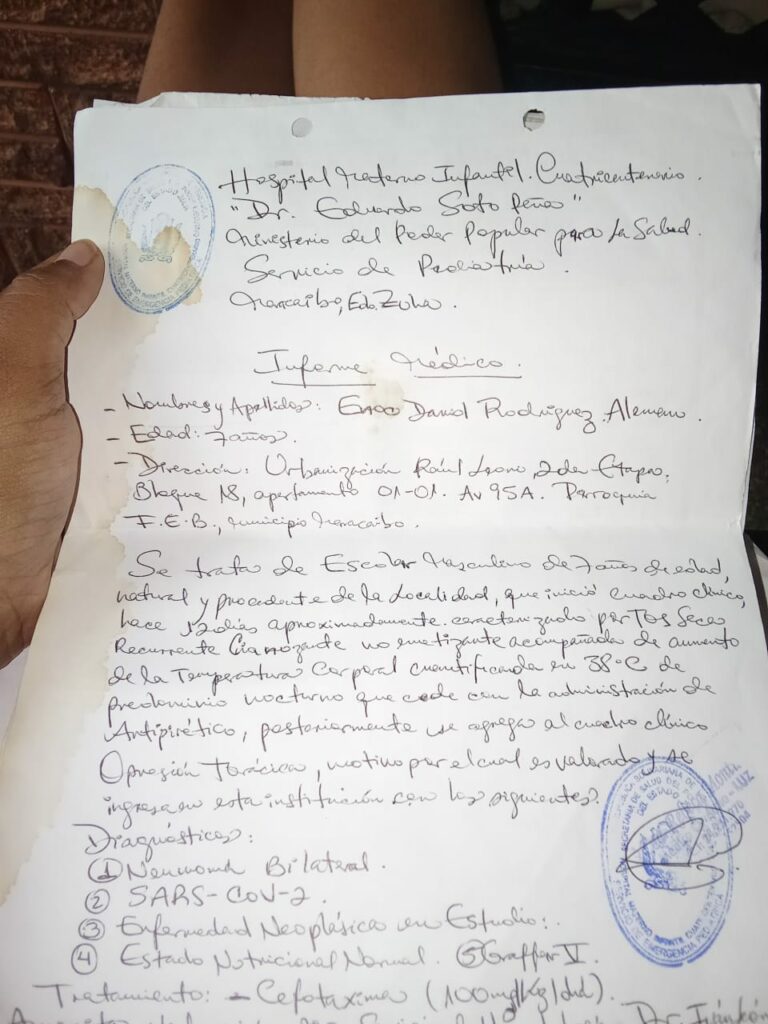 Hospital Materno Infantil. Cuatricentenario.
"Dr. Eduardo Soto Peña"
Ministerio del Poder Popular para La Salud.
Servicio de Pediatría.
Maracaibo, Edo. Zulia.
Informe Médico.
- Nombres y Apellidos: Daniel Rodríguez Alemano.
- Edad: 7 años.
- Dirección: Urbanización Raúl Leoni, 2da Etapa,
Bloque 18, apartamento 01-01. Av 95A. Parroquia
F.E.B., municipio Maracaibo.
Se trata de Escolar Masculino de 7 años de edad,
natural y procedente de la Localidad, que inició cuadro clínico,
hace 12 días aproximadamente caracterizado por Tos Seca
Recurrente Cianozante no emetizante acompañada de aumento
de la Temperatura Corporal cuantificada en 38°C de
predominio nocturno que cede con la administración de
Antipirético, posteriormente se agrega al cuadro clínico
Opresión Torácica, motivo por el cual es valorado y se
ingresa en esta institución con los siguientes:
Diagnósticos:
① Neumonía Bilateral.
② SARS-CoV-2.
③ Enfermedad Neoplásica en Estudio:.
④ Estado Nutricional Normal. ⑤ Graffar V.
Tratamiento: - Cefotaxima (100mg/Kg/dia).